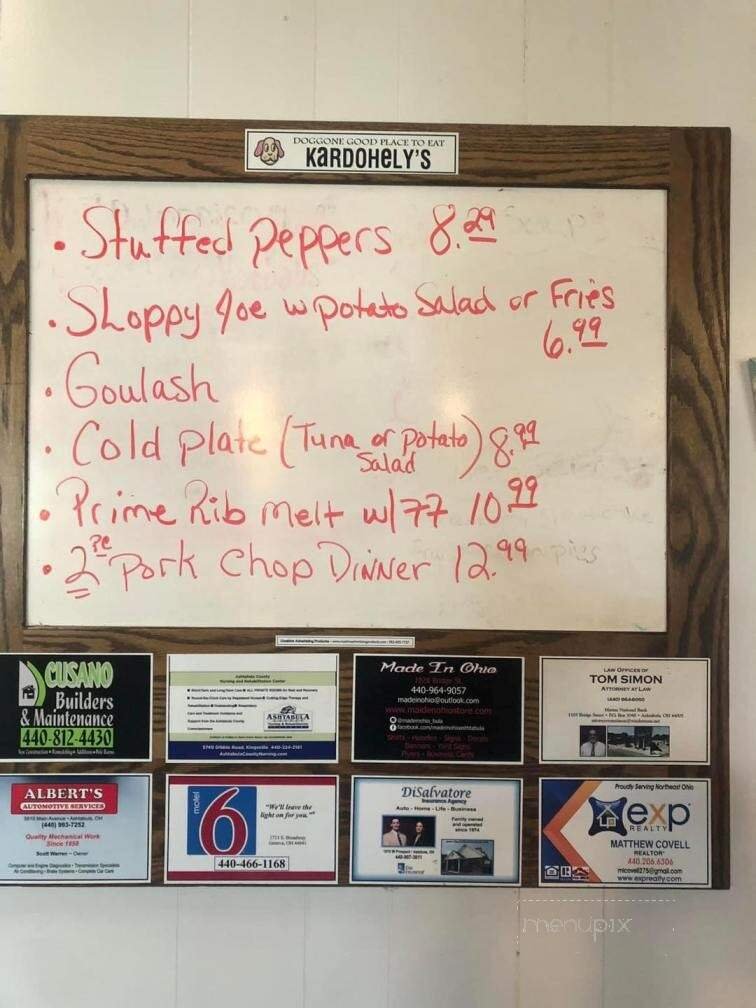 DOGGONE GOOD PLACE TO EAT
KARDOHELY'S
• Stuffed Peppers 8.29
• SLoppy Joe w potato Salad or Fries
6.99
• Goulash
• Cold plate (Tuna or potato) 8.99
Salad
• Prime Rib Melt w/77 10.99
• 2 pc Pork Chop Dinner 12.99
CUSANO
Builders
& Maintenance
440-812-4430
Ashtabula County
Nursing and Rehabilitation Center
ASHTABULA
5740 Dibble Road, Kingsville 440-224-2161
AshtabulaCountyNursing.com
Made In Ohio
Bridge St.
440-964-9057
madeinohio@outlook.com
www.madeinohiostore.com
@madeinohio_bula
LAW OFFICES OF
TOM SIMON
ATTORNEY AT LAW
ALBERT'S
AUTOMOTIVE SERVICES
(440) 993-7252
Quality Mechanical Work
Since 1959
Scott Warren - Owner
motel
6
"We'll leave the
light on for you."
Geneva, OH 44041
440-466-1168
DiSalvatore
Insurance Agency
Auto - Home - Life - Business
Family owned
and operated
since 1974
Proudly Serving Northeast Ohio
exp
REALTY
MATTHEW COVELL
REALTOR
440.206.6306
mlcovell275@gmail.com
www.exprealty.com
menupix